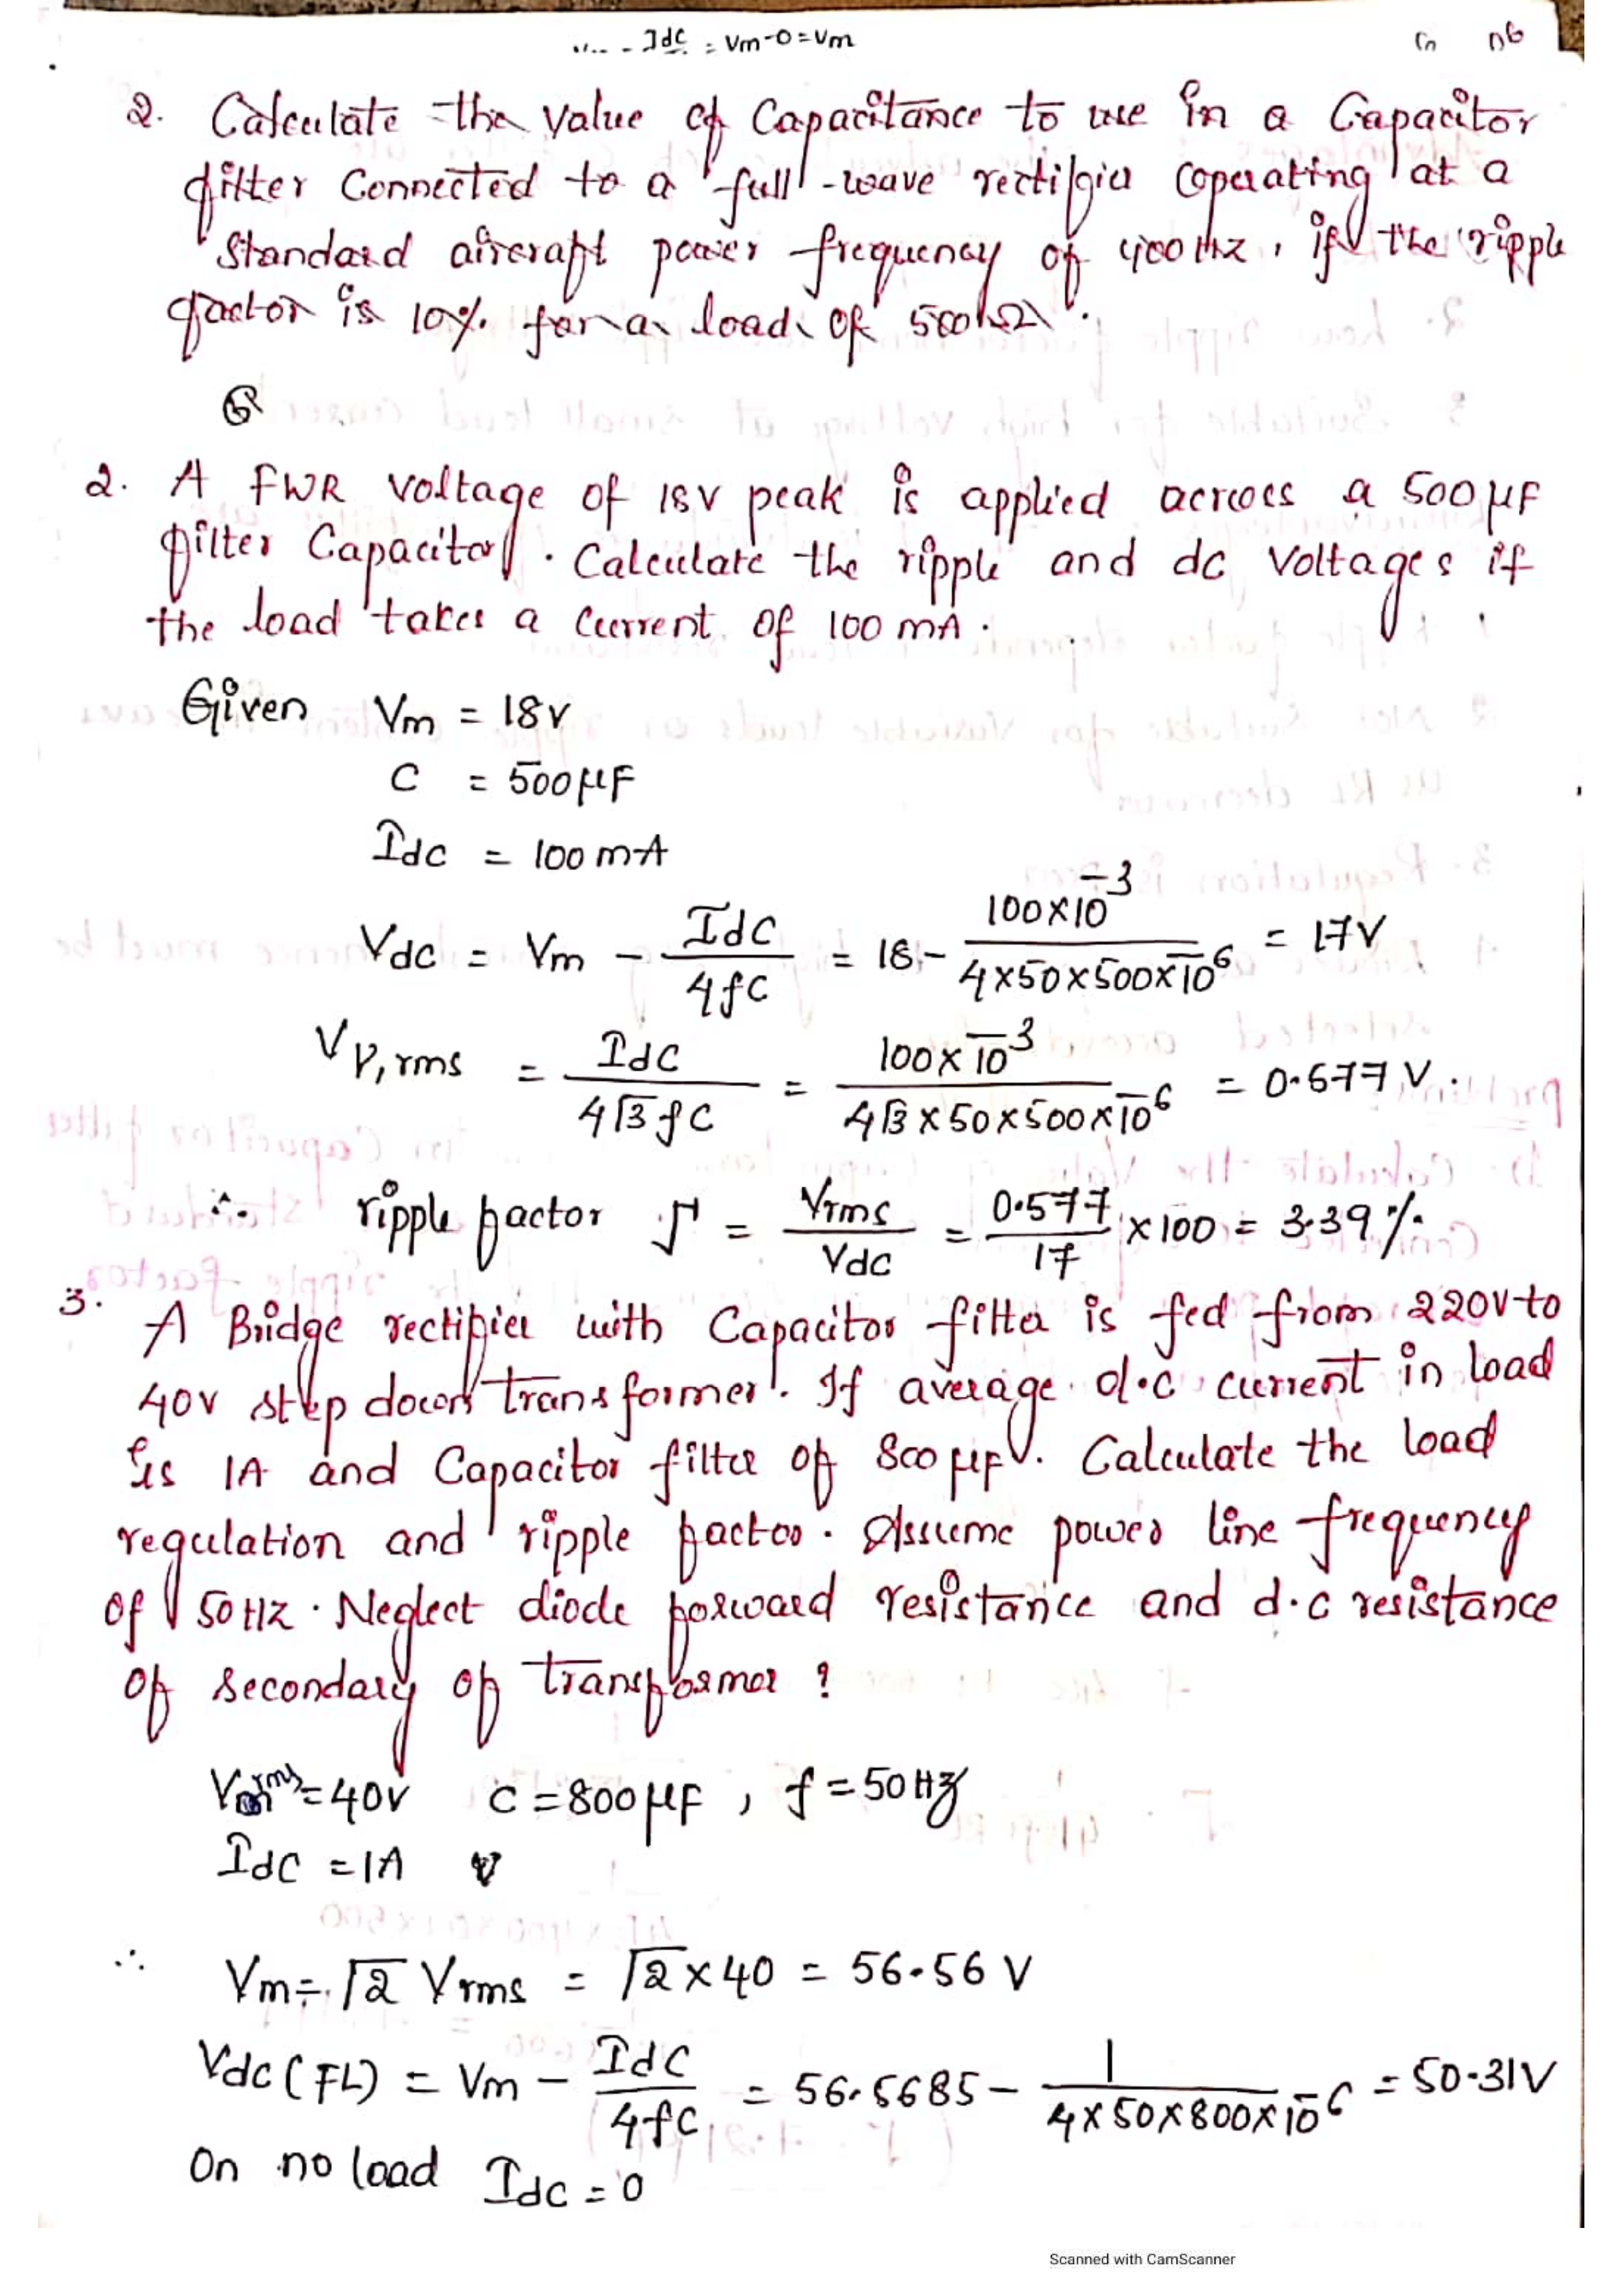 Idc = Vm-0=Vm
2. Calculate the value of Capacitance to use in a Capacitor
filter Connected to a full-wave rectifier operating at a
Standard aircraft power frequency of 400 Hz, if the ripple
factor is 10% for a load of 500Ω.
2. A FWR voltage of 18V peak is applied across a 500μF
filter Capacitor. Calculate the ripple and dc voltages if
the load takes a current of 100 mA.
Given Vm = 18V
C = 500μF
Idc = 100 mA
Vdc = Vm - Idc/4fC = 18 - 100×10^-3/4×50×500×10^-6 = 17V
Vr,rms = Idc/4√3fC = 100×10^-3/4√3×50×500×10^-6 = 0.577 V.
∴ ripple factor Γ = Vrms/Vdc = 0.577/17 ×100 = 3.39%
3. A Bridge rectifier with Capacitor filter is fed from 220V to
40V step down transformer. If average d.c current in load
is 1A and Capacitor filter of 800μF. Calculate the load
regulation and ripple factor. Assume power line frequency
of 50HZ. Neglect diode forward resistance and d.c resistance
of secondary of transformer?
Vrms=40V C=800μF, f=50Hz
Idc =1A
∴ Vm=√2 Vrms = √2×40 = 56.56 V
Vdc(FL) = Vm - Idc/4fC = 56.5685 - 1/4×50×800×10^-6 = 50.31V
On no load Idc=0
Scanned with CamScanner